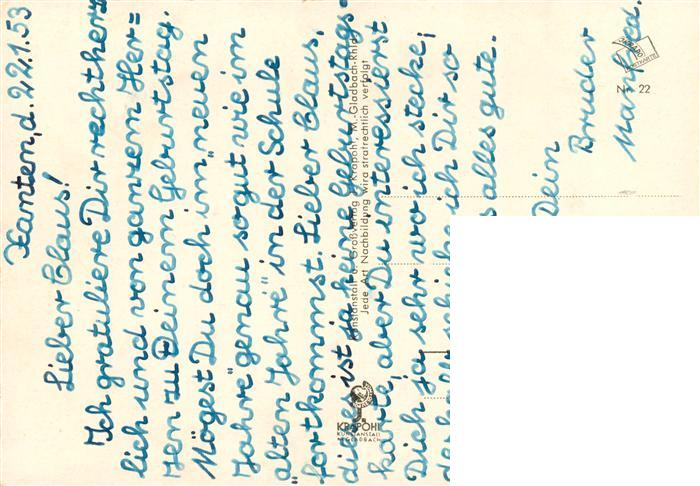 Xanten, d. 22.1.53
Lieber Claus!
Ich gratuliere Dir recht herz
lich und von ganzem Her=
zen zu Deinem Geburtstag.
Mögest Du doch im "neuen
Jahre" genau so gut wie im
"alten Jahre" in der Schule
fortkommst. Lieber Claus,
dieses ist ja keine Geburtstags-
karte, aber Du interessierst
Dich ja sehr wo ich stecke;
ich Dir so
alles gute.
Dein
Bruder
Manfred.
Kunstanstalt u. Großverlag A. Krapohl, M.-Gladbach-Rhld.
Jede Art Nachbildung wird strafrechtlich verfolgt
KRAPOHL
KUNSTANSTALT
M.GLADBACH
Nr. 22